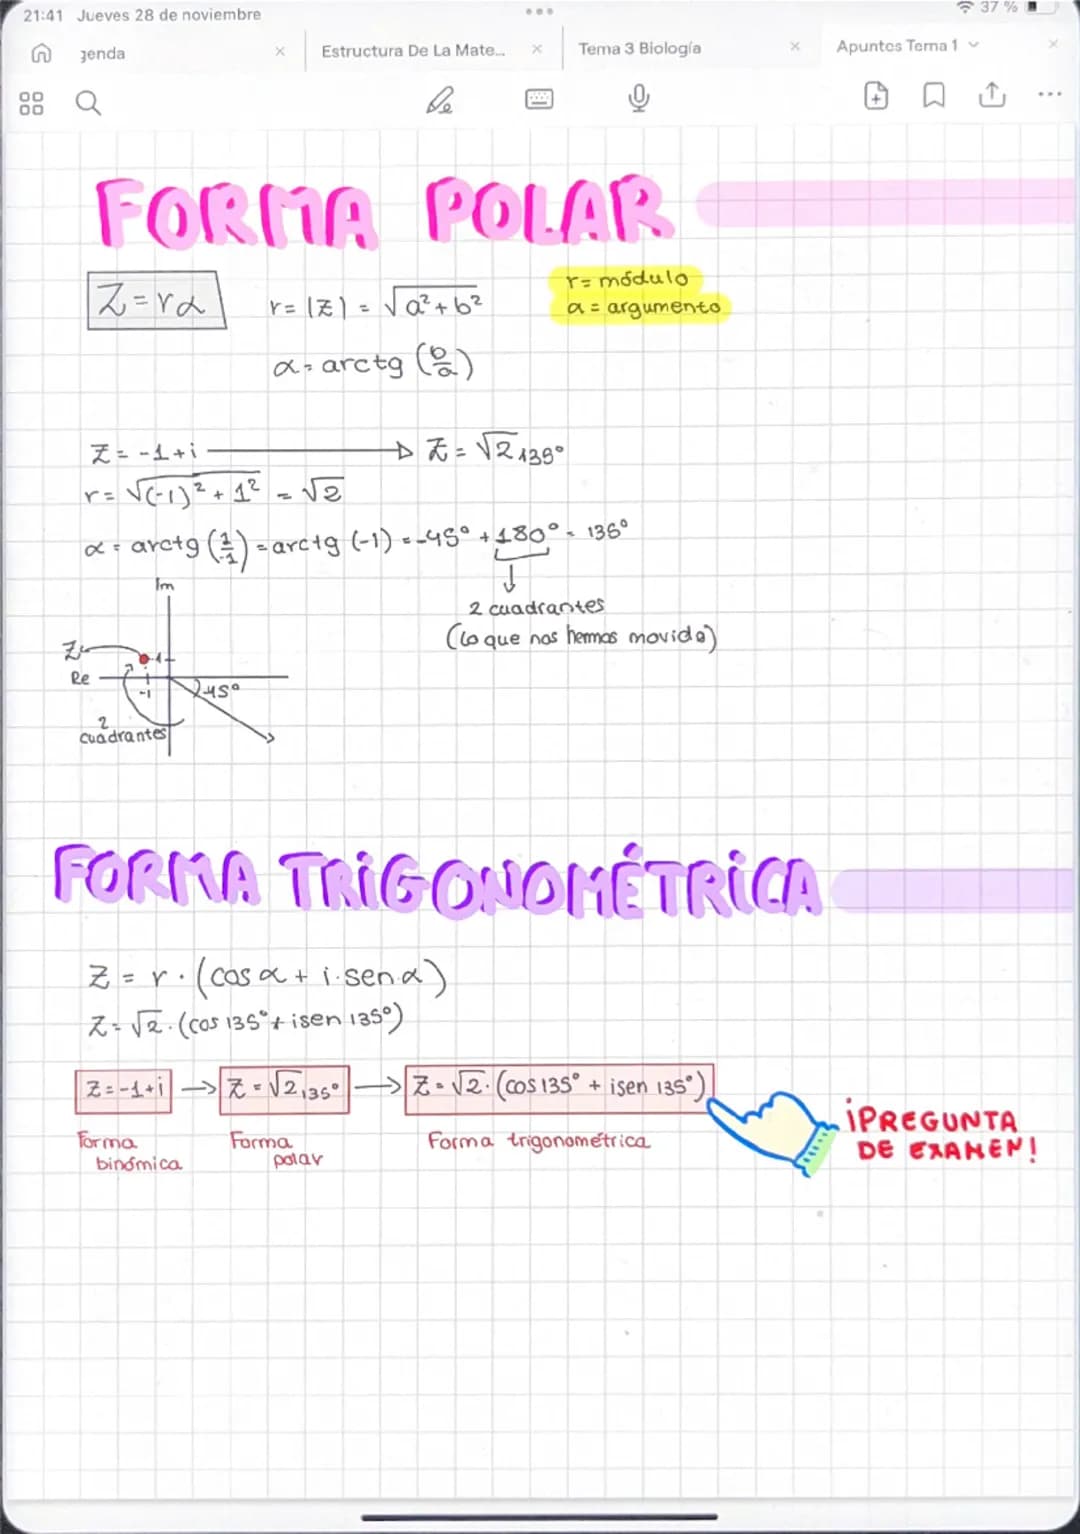 21:41 Jueves 28 de noviembre
37 %
genda
Estructura De La Mate...
Tema 3 Biología
Apuntes Tema 1
FORMA POLAR
Z = rα
r = |Z| = √a² + b²
r = módulo
α = argumento
α = arctg (b/a)
Z = -1 + i → Z = √2 135°
r = √(-1)² + 1² = √2
α = arctg (1/-1) = arctg (-1) = -45° + 180° = 135°
2 cuadrantes
(lo que nos hemos movido)
Im
Z
1
Re
-1
45°
2
cuadrantes
FORMA TRIGONOMÉTRICA
Z = r · (cos α + i · sen α)
Z = √2 · (cos 135° + i sen 135°)
Z = -1 + i → Z = √2 135° → Z = √2 · (cos 135° + i sen 135°)
Forma
binómica
Forma
polar
Forma trigonométrica
¡PREGUNTA
DE EXAMEN!